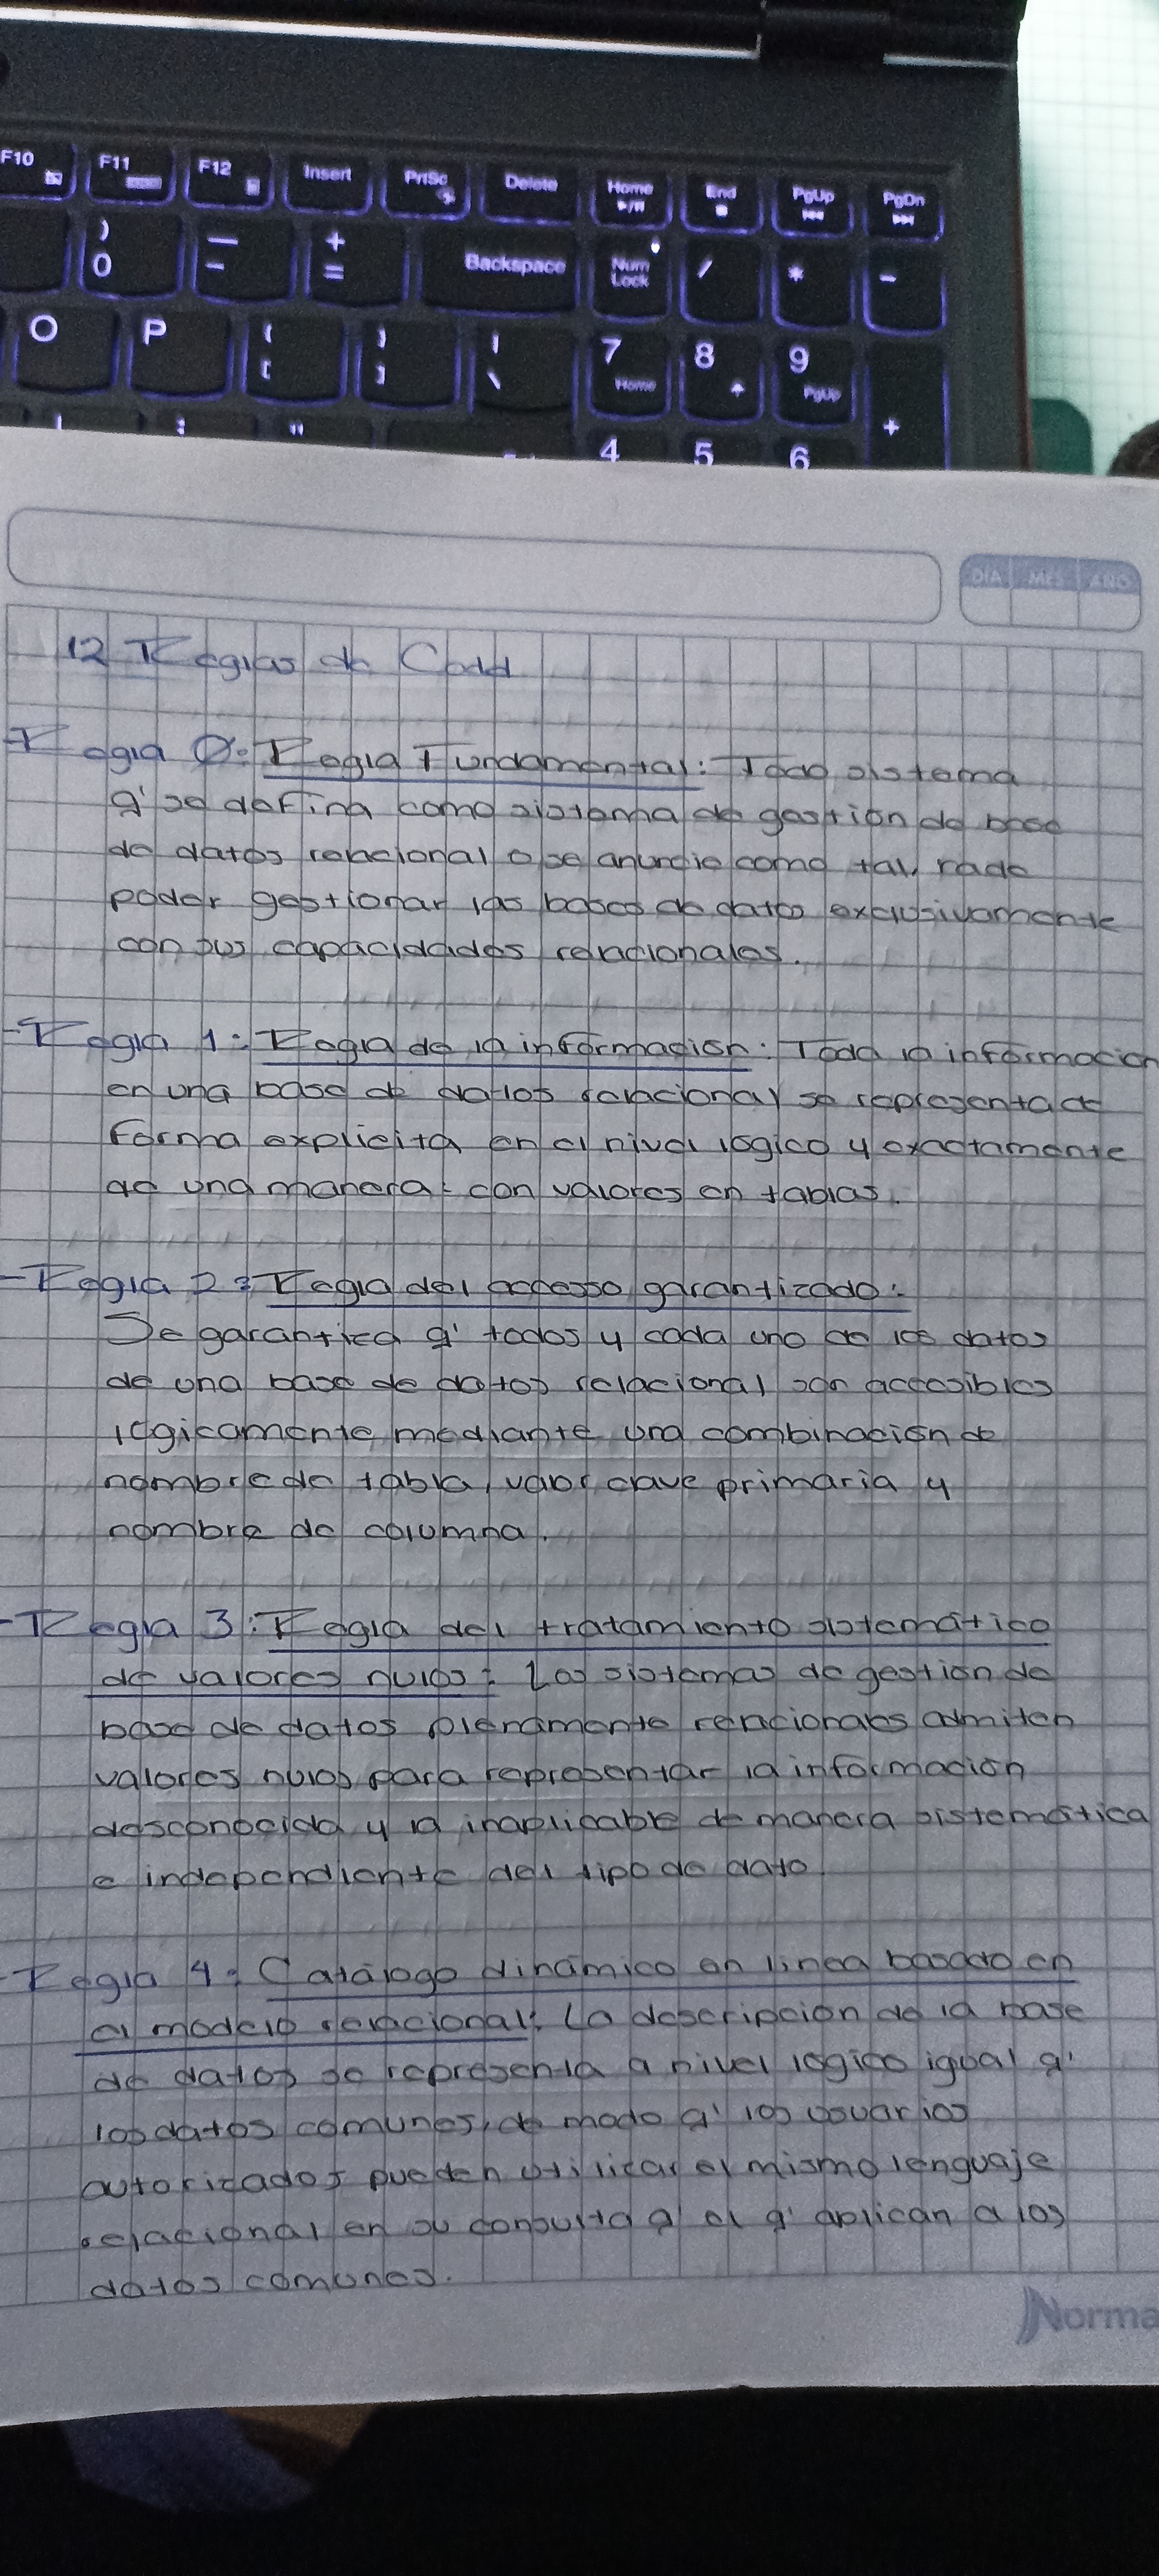 F10 F11 F12 Insert PrtSc Delete Home End PgUp PgDn
) 0 — - + = Backspace Num Lock / * -
O P { [ } ] | \ 7 Home 8 9 PgUp +
: " 4 5 6
DIA MES AÑO
12 Reglas de Codd
- Regla 0: Regla Fundamental: Todo sistema
q' se defina como sistema de gestión de base
de datos relacional o se anuncie como tal,
poder gestionar las bases de datos exclusivamente
con sus capacidades relacionales.
- Regla 1: Regla de la información: Toda la información
en una base de datos relacional se representa de
forma explicita en el nivel lógico y exactamente
de una manera: con valores en tablas.
- Regla 2: Regla del accesso garantizado:
Se garantiza q' todos y cada uno de los datos
de una base de datos relacional son accesibles
lógicamente mediante una combinación de
nombre de tabla, valor clave primaria y
nombre de columna.
- Regla 3: Regla del tratamiento sistemático
de valores nulos: Los sistemas de gestión de
base de datos plenamente relacionales admiten
valores nulos para representar la información
desconocida y la inaplicable de manera sistemática
e independiente del tipo de dato.
- Regla 4: Catálogo dinámico en linea basado en
el modelo relacional: La descripción de la base
de datos se representa a nivel lógico igual q'
los datos comunes, de modo q' los usuarios
autorizados pueden utilizar el mismo lenguaje
relacional en su consulta q' el q' aplican a los
datos comunes.
Norma